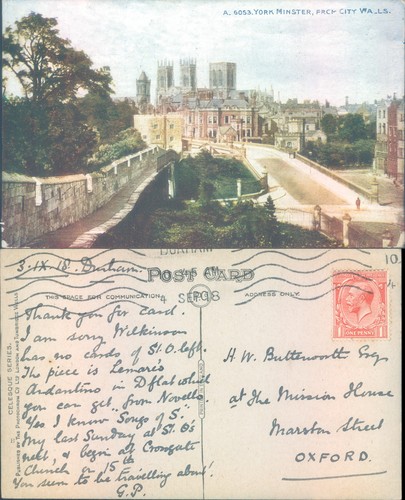 A. 6053. YORK MINSTER, FROM CITY WALLS.
DURHAM
3·IX·18. Durham.
POST CARD
THIS SPACE FOR COMMUNICATION
4 SEP 18
ADDRESS ONLY.
10.
Thank you for card.
I am sorry Wilkinson
has no cards of St. O. left.
The piece is Lemare's
Andantino in D flat which
you can get from Novello.
Yes I know Songs of S.
My last Sunday at St. O's
next, & begin at Crossgate
Church on 15th
You seem to be travelling about!
G.P.
H. W. Butterworth Esq
at The Mission House
Marston Street
OXFORD.
ONE PENNY
CELESQUE SERIES.
PUBLISHED BY THE PHOTOCHROM CO LTD LONDON AND TUNBRIDGE WELLS